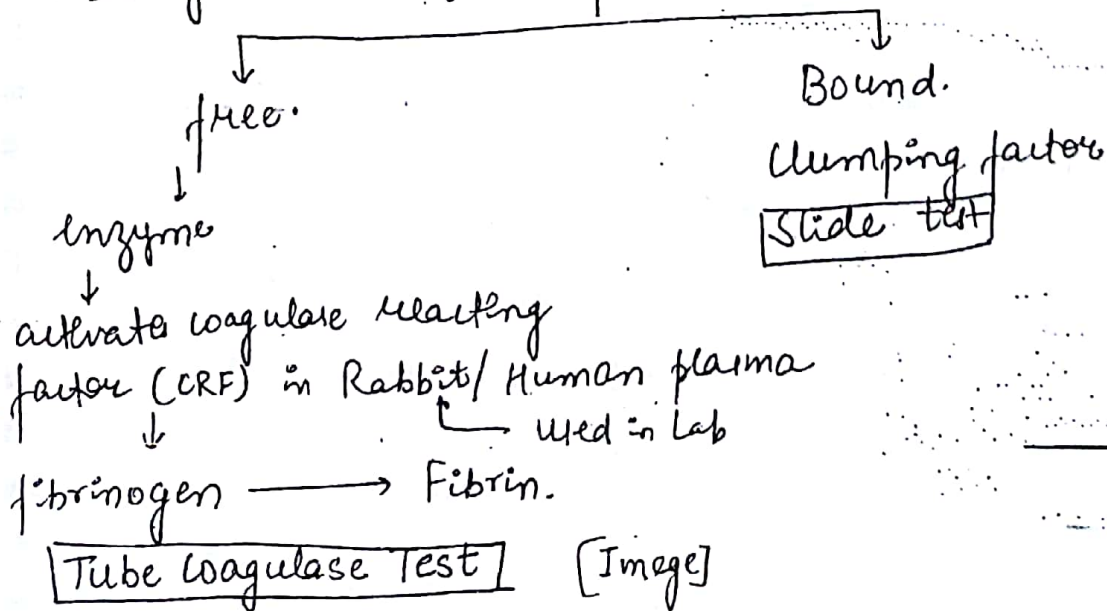 free.
Bound.
enzyme
Clumping factor
Slide test
activates coagulase reacting
factor (CRF) in Rabbit/ Human plasma
used in Lab
fibrinogen → Fibrin.
Tube Coagulase Test [Image]